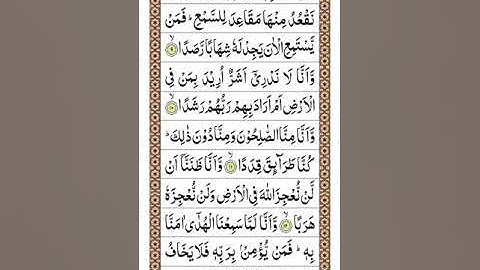 نَقْعُدُ مِنْهَا مَقَاعِدَ لِلسَّمْعِ ؕ فَمَنْ
يَّسْتَمِعِ الْاٰنَ يَجِدْ لَهٗ شِهَابًا رَّصَدًا ۙ﴿۹﴾
وَّاَنَّا لَا نَدْرِیْۤ اَشَرٌّ اُرِیْدَ بِمَنْ فِی
الْاَرْضِ اَمْ اَرَادَ بِهِمْ رَبُّهُمْ رَشَدًا ۙ﴿۱۰﴾
وَّاَنَّا مِنَّا الصّٰلِحُوْنَ وَمِنَّا دُوْنَ ذٰلِكَ ؕ
كُنَّا طَرَآئِقَ قِدَدًا ۙ﴿۱۱﴾ وَّاَنَّا ظَنَنَّاۤ اَنْ
لَّنْ نُّعْجِزَ اللّٰهَ فِی الْاَرْضِ وَلَنْ نُّعْجِزَهٗ
هَرَبًا ۙ﴿۱۲﴾ وَّاَنَّا لَمَّا سَمِعْنَا الْهُدٰۤی اٰمَنَّا
بِهٖ ؕ فَمَنْ یُّؤْمِنْۢ بِرَبِّهٖ فَلَا یَخَافُ